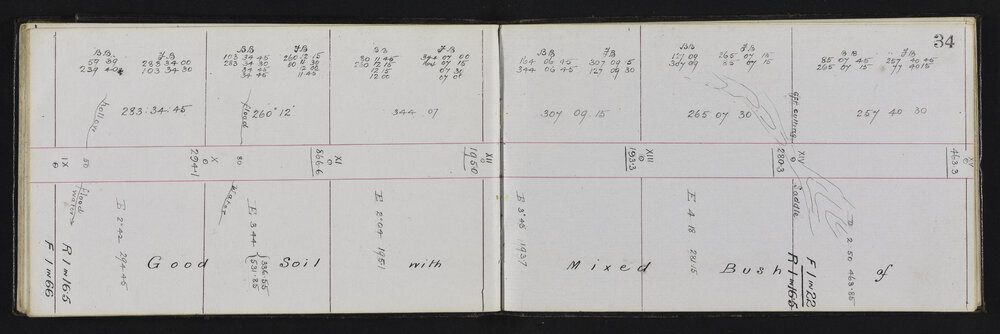 34
B B
F B
59 39
283 34 00
239 40
103 34 30
B B
F B
103 34 45
260 12 15
283 34 30
80 11 30
34 45
12 00
34 45
11 45
B B
F B
80 11 45
344 07 00
260 12 15
164 07 15
12 15
07 30
12 00
07 00
B B
F B
164 06 45
307 09 15
344 06 45
127 09 30
B B
F B
127 09
265 07 15
307 09
85 07 15
B B
F B
85 07 45
257 40 45
265 07 15
77 40 15
hollow
283·34·45
flood
260° 12'
344 07
307 09 15
265 07 30
opp. cutting
257 40 30
IX
50
X
294·1
80
XI
866·6
XII
1950
XIII
193·3
XIV
280·3
XV
463·3
flood
water
E 2°42 294·45
water
E 3 44
336·55
531·85
E 2°04 1951
E 3°45 1937
E 4 18 2815
Saddle
D 2 50 463·85
Good Soil with Mixed Bush of
F 1 m 66
R 1 m 165
F 1 m 22
R 1 m 166